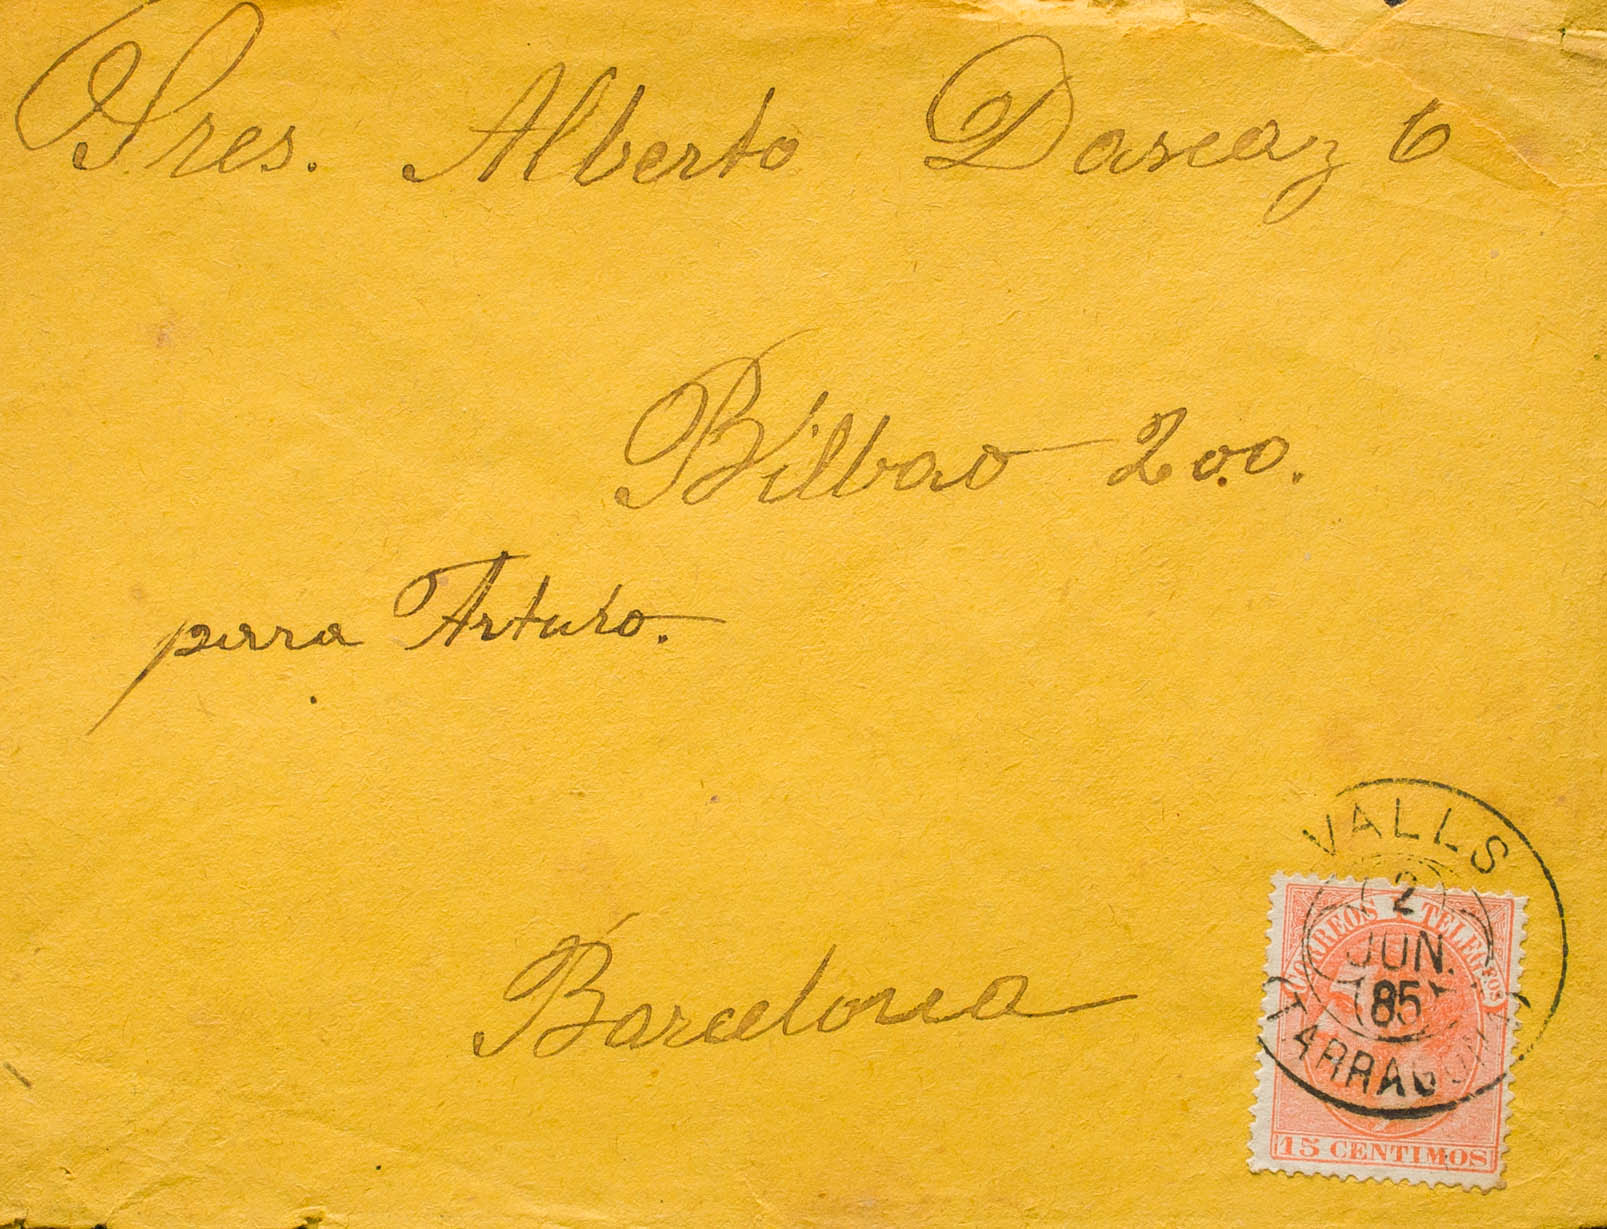 Sres. Alberto Dascaz 6
Bilbao 200.
para Arturo.
Barcelona
VALLS
2
JUN.
85
TARRAGONA
CORREOS Y TELEGFOS
15 CENTIMOS